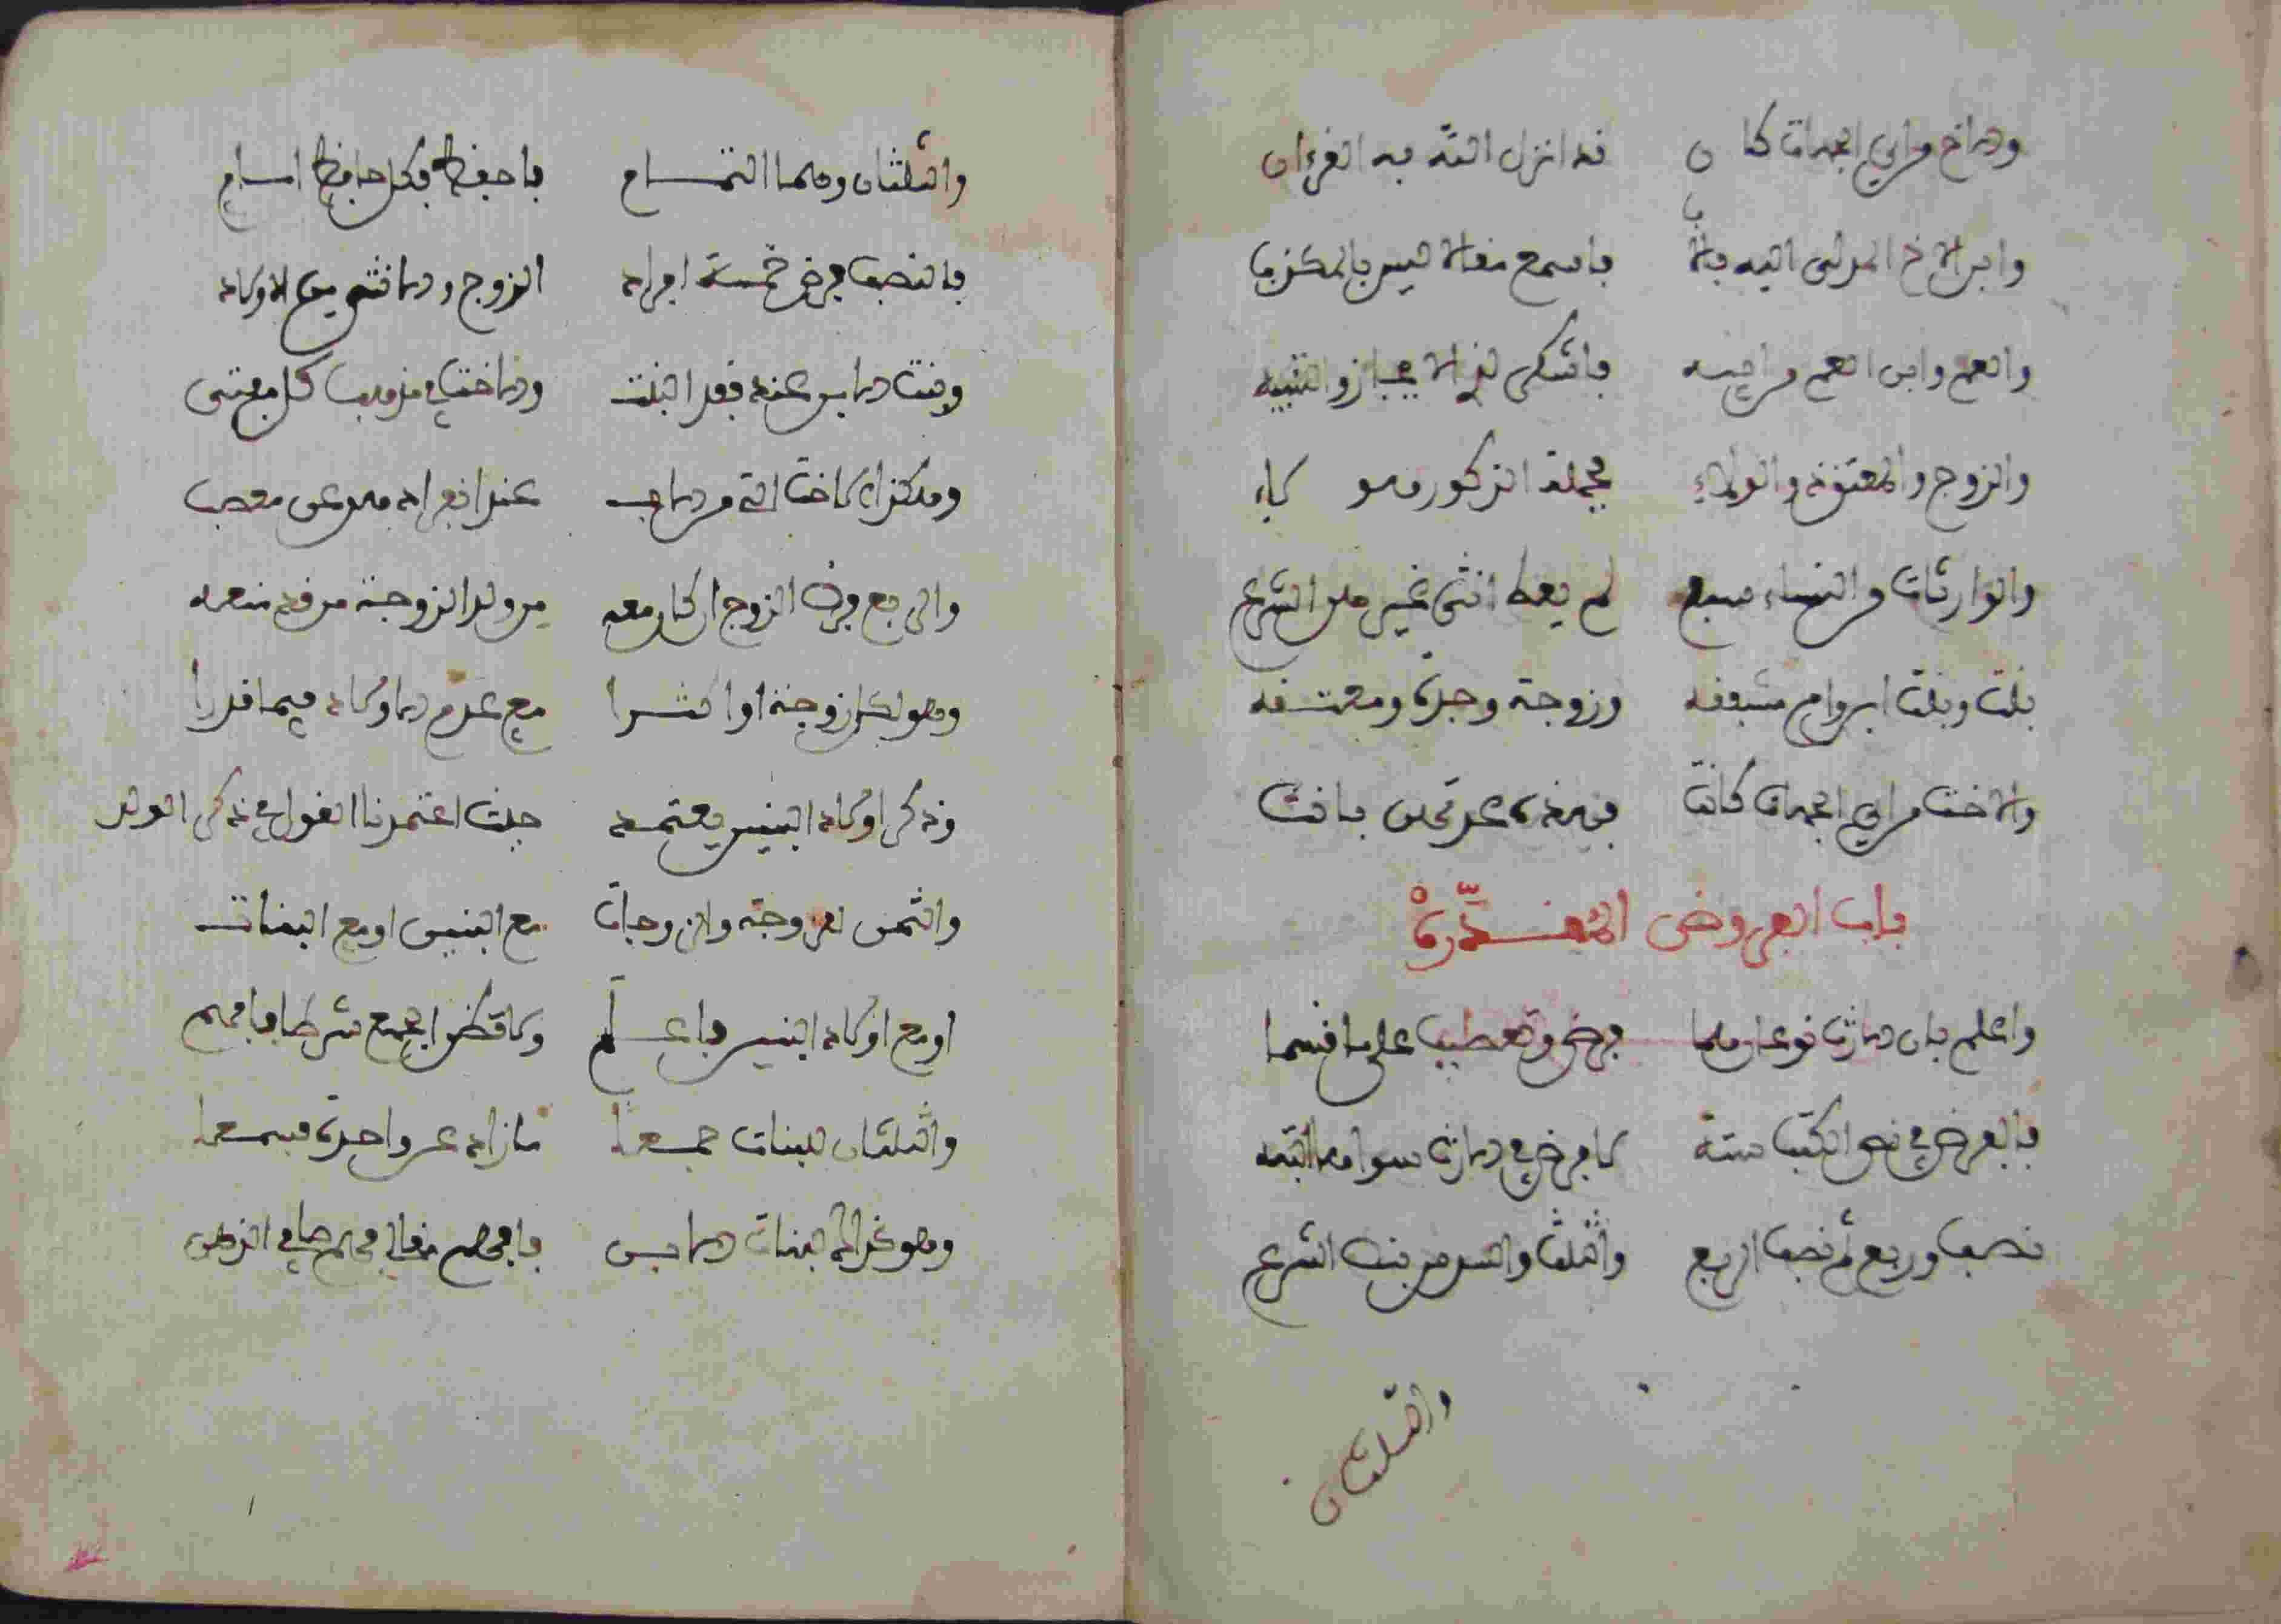 والاخ من اي الجهات كان قد انزل الله به القرءان
وابن الاخ المدلى اليه بالاب فاسمع مقالا ليس بالمكذب
والعم وابن العم من ابيه فاشكر لذي الايجاز والتنبيه
والزوج والمعتق ذو الولاء فجملة الذكور هولاء
والوارثات من النساء سبع لم يعط انثى غيرهن الشرع
بنت وبنت ابن وام مشفقه وزوجة وجدة ومعتقه
والاخت من اي الجهات كانت فهذه عدتهن بانت
باب الفروض المقدّرة
واعلم بان الارث نوعان هما فرض وتعصيب على ما قسما
فالفرض في نص الكتاب ستة لا فرض في الارث سواها البته
نصف وربع ثم نصف الربع والثلث والسدس بنص الشرع
والثلثان
والثلثان وهما التمام فاحفظ فكل حافظ امام
فالنصف فرض خمسة افراد الزوج والانثى من الاولاد
وبنت الابن عند فقد البنت والاخت في مذهب كل مفتي
وهكذا الاخت التي من الاب عند انفرادهن عن معصب
والربع فرض الزوج ان كان معه من ولد الزوجة من قد منعه
وهو لكل زوجة او اكثرا مع عدم الاولاد فيما قدرا
وذكر اولاد البنين يعتمد حيث اعتمدنا القول في ذكر الولد
والثمن للزوجة والزوجات مع البنين او مع البنات
او مع اولاد البنين فاعلم ولا تظن الجمع شرطا فافهم
والثلثان للبنات جمعا ما زاد عن واحدة فسمعا
وهو كذاك لبنات الابن فافهم مقالي فهم صافي الذهن